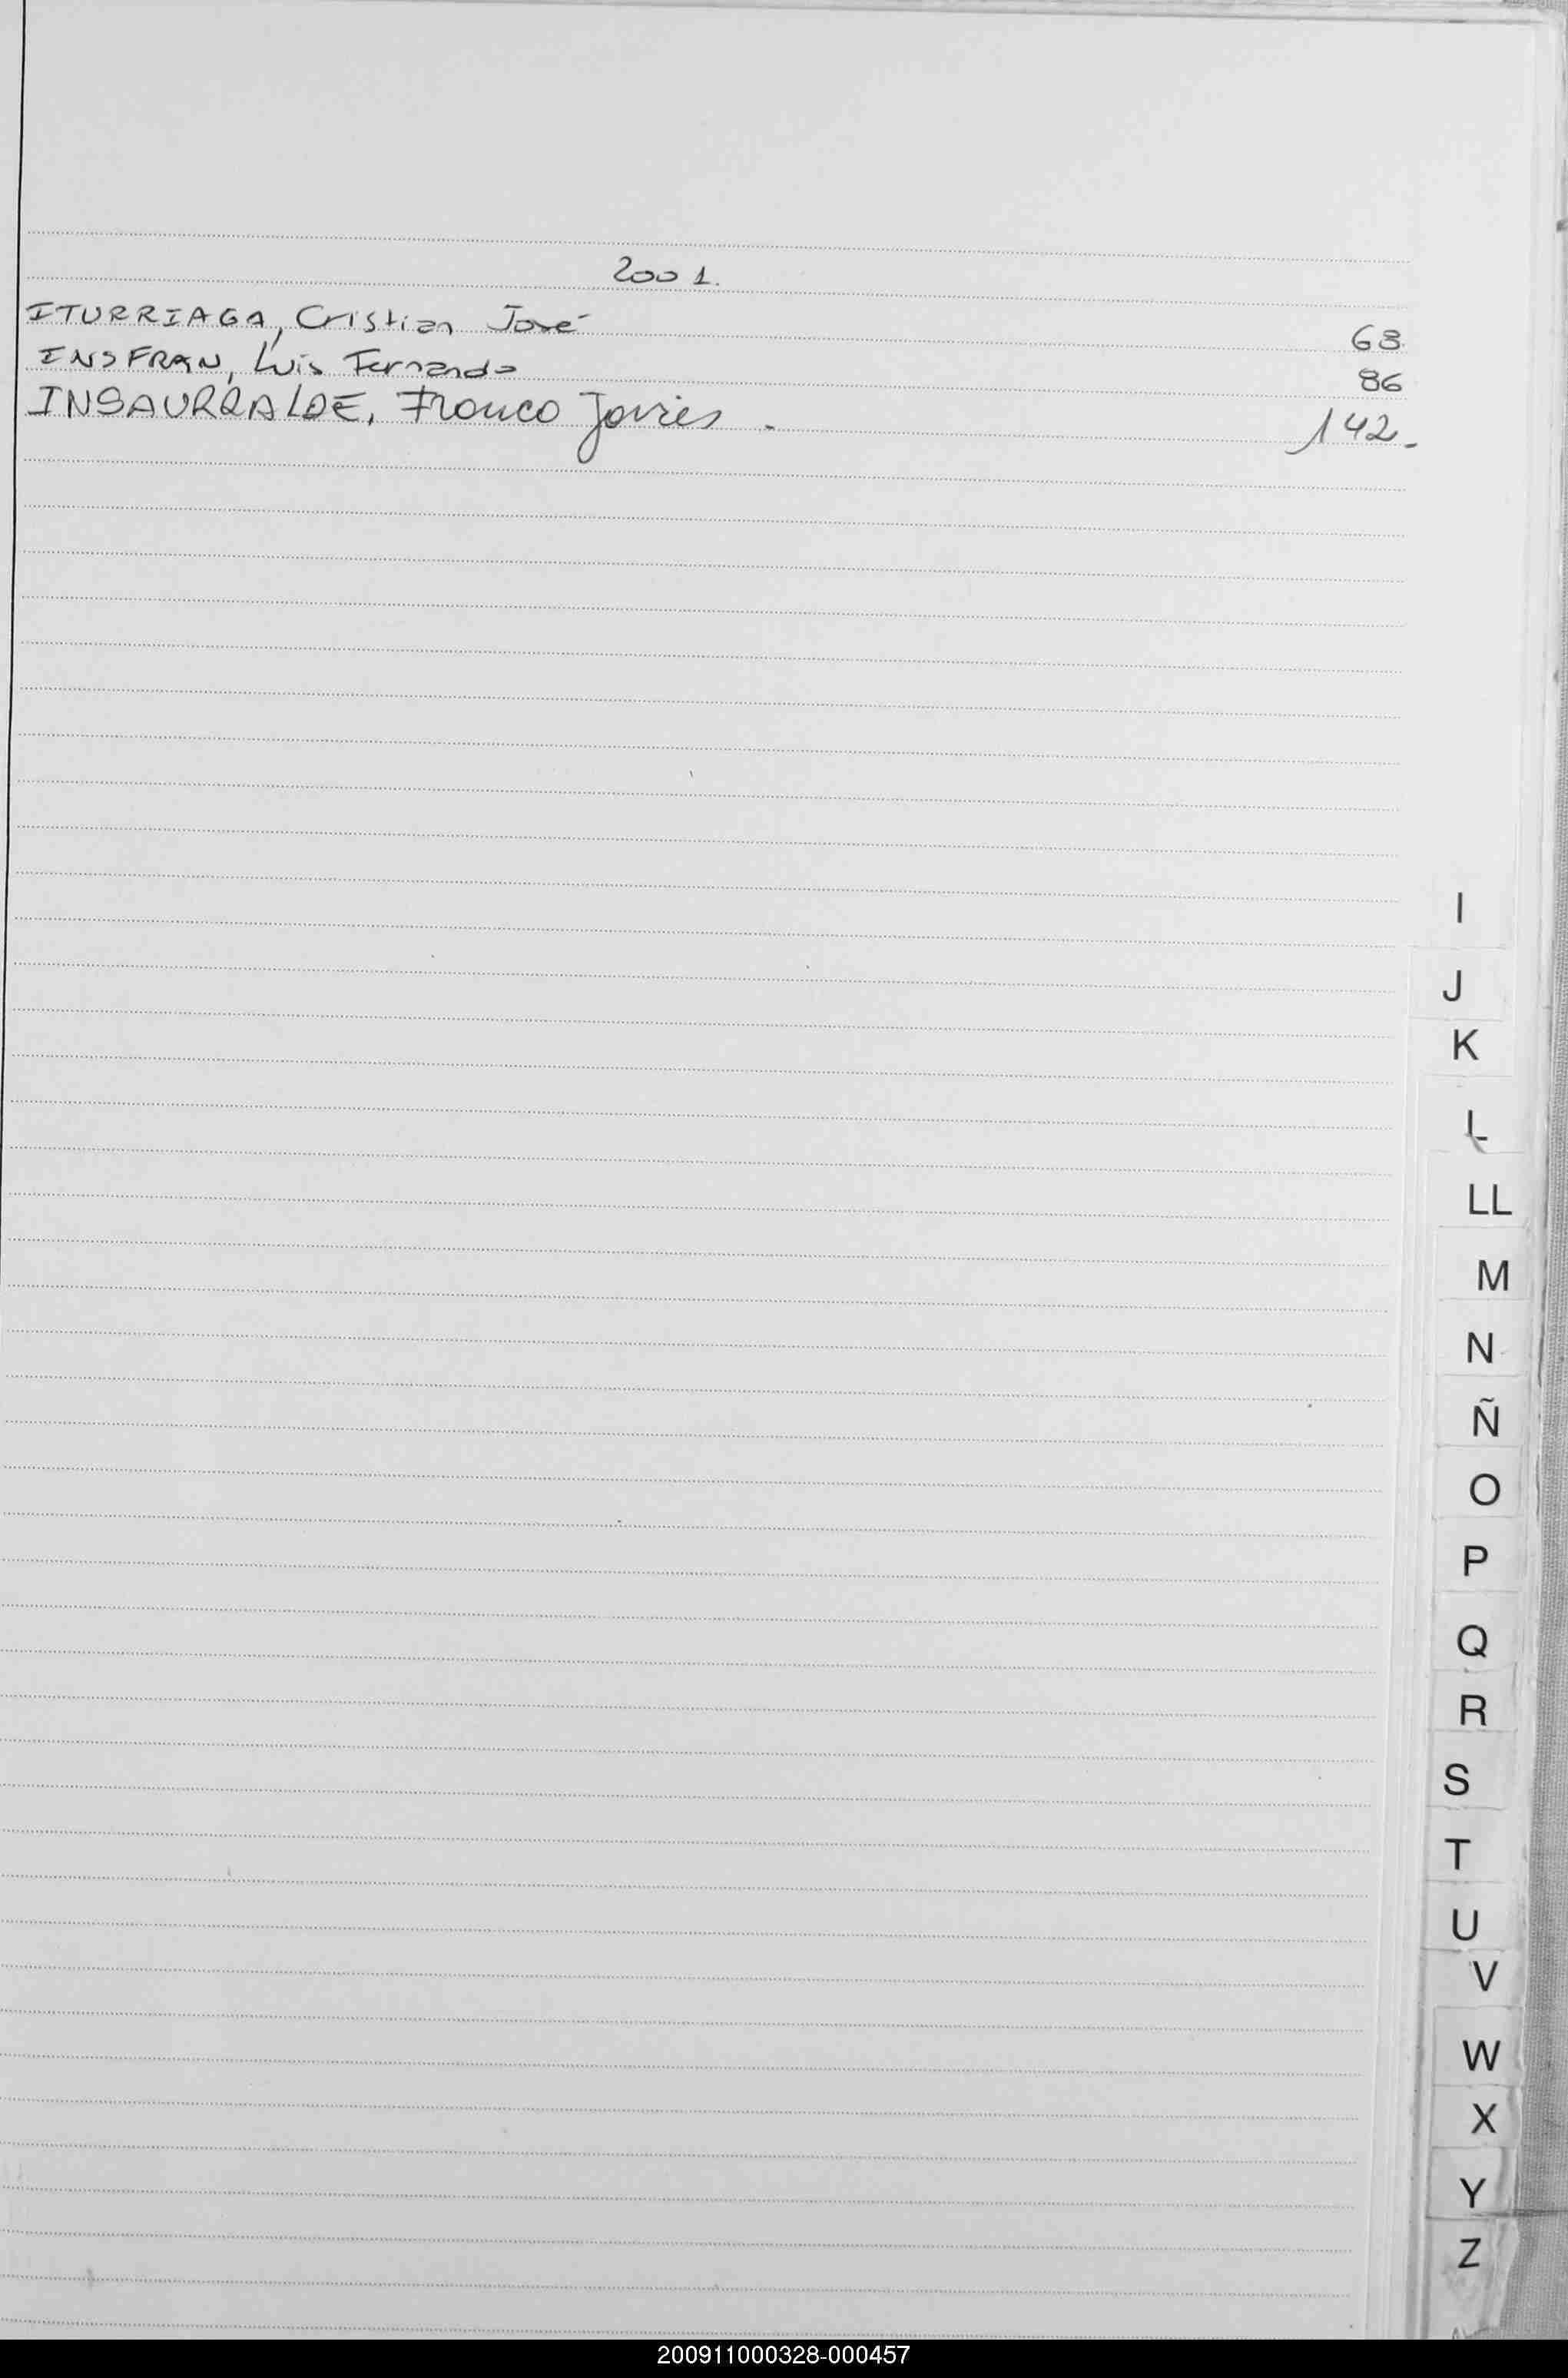 2001.
ITURRIAGA, Cristian José 68
INSFRAN, Luis Fernando 86
INSAURRALDE, Franco Javier. 142.
I
J
K
L
LL
M
N
Ñ
O
P
Q
R
S
T
U
V
W
X
Y
Z
200911000328-000457